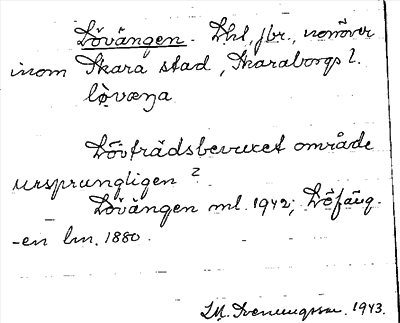 Lövängen. Lht, jbr., norröver
inom Skara stad, Skaraborgs l.
lø̀væŋa
Lövträdsbevuxet område
ursprungligen?
Lövängen ml. 1942; Löfäng-
-en lm. 1880.
I.M. Svenungsson. 1943.